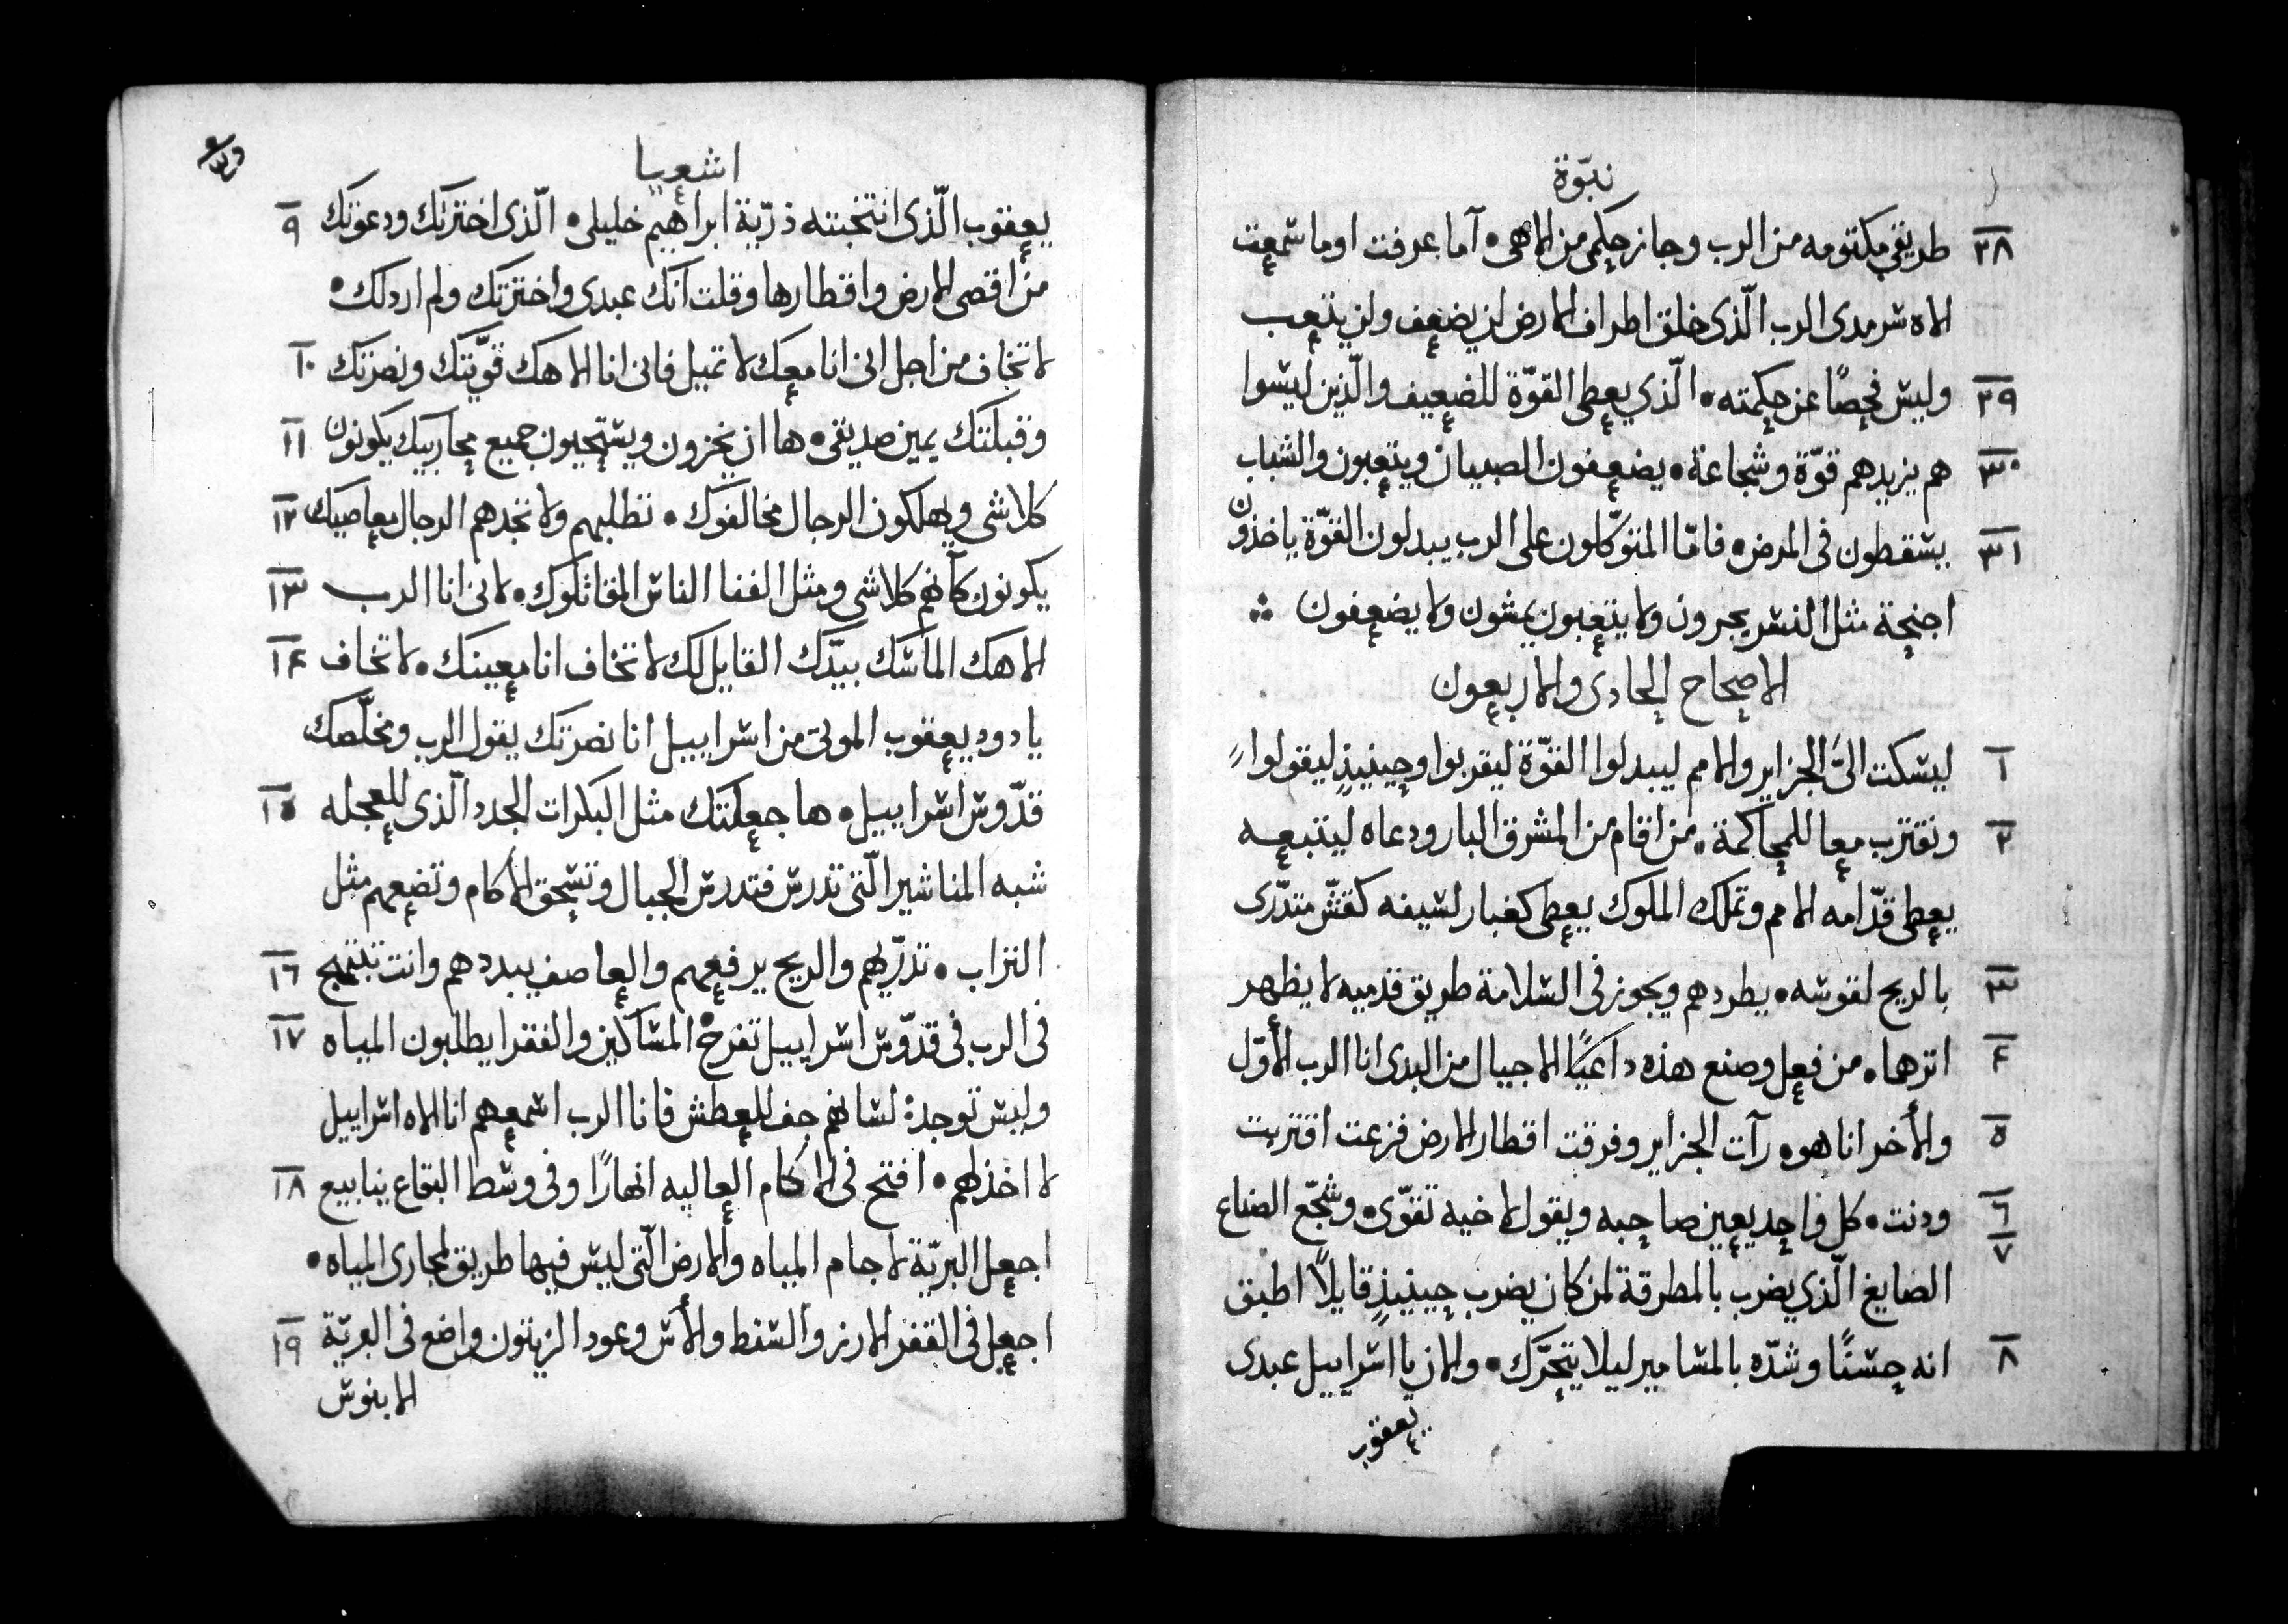 نبوّة
٢٨ طريقي مكتومه من الرب وجاز حكمى من الاهى • آما عرفت اوما سمعت
الاه سرمدى الرب الّذى خلق اطراف الارض لن يضعف ولن يتعب
٢٩ وليس فحصًا عن حكمته • الّذي يعطى القوّة للضعيف والّذين ليسوا
٣٠ هم يزيدهم قوّة وشجاعة • يضعفون الصبيان ويتعبون والشباب
٣١ يسقطون فى المرض • فامّا المتوكّلون على الرب يبدلون القوّة ياخذون
اجنحة مثل النسر يجرون ولا يتعبون يمشون ولا يضعفون ∴
الاصحاح الحادى والاربعون
١ ليسكت الىّ الجزاير والامم ليبدلوا القوّة ليقربوا وحينيذٍ ليقولوا
٢ ونقترب معا للمحاكمة • من اقام من المشرق البار ودعاه ليتبعه
يعطى قدّامه الامم وتملك الملوك يعطى كغبار لسيفه كقشّ متدّرى
٣ بالريح لقوسه • يطردهم ويجوز فى السلامة طريق قدميه لا يظهر
٤ اثرها • من فعل وصنع هذه داعيًا الاجيال من البدى انا الرب الأوّل
٥ والأخر انا هو • رآت الجزاير وفرقت اقطار الارض فزعت اقتربت
٦ ودنت • كل واحد يعين صاحبه ويقول لاخيه تقوّى • وشجّع الصناع
٧ الصايغ الّذي يضرب بالمطرقة لمن كان يضرب حينيذٍ قايلاً اطبق
٨ انه حسنًا وشدّه بالمسامير ليلا يتحرّك • والان يا اسراييل عبدى
يعقوب
اشعيا
يعقوب الّذى انتخبته ذرّية ابراهيم خليلى • الّذى اخترتك ودعوتك ٩
من اقصى الارض واقطارها وقلت انك عبدى واخترتك ولم اردلك •
لا تخاف من اجل انى انا معك لا تميل فانى انا الاهك قوّيتك ونصرتك ١٠
وقبلتك يمين صديقى • ها ان يخزون ويستحيون جميع محاربيك يكونون ١١
كلاشى ويهلكون الرجال مخالفوك • تطلبهم ولا تجدهم الرجال معاصيك ١٢
يكونون كآنهم كلاشى ومثل الفنا الناس المقاتلوك • لانى انا الرب ١٣
الاهك الماسك بيدّك القايل لك لا تخاف انا معينك • لا تخاف ١٤
يا دود يعقوب الموتى من اسراييل انا نصرتك يقول الرب ومخلّصك
قدّوس اسراييل • ها جعلتك مثل البكرات الجدد الّذى للعجله ١٥
شبه المناشير الّتى تدرس فتدرس الجبال وتسحق الاكام وتضعهم مثل
التراب • تذرّيهم والريح يرفعهم والعاصف يبددهم وانت تبتهج ١٦
فى الرب فى قدّوس اسراييل تفرح • المساكين والفقرا يطلبون المياه ١٧
وليس توجد لسانهم جف للعطش فانا الرب اسمعهم انا الاه اسراييل
لا اخذلهم • افتح فى الاكام العاليه انهارًا وفى وسط البقاع ينابيع ١٨
اجعل البريّة لاجام المياه والارض الّتى ليس فيها طريق لمجارى المياه •
اجعل فى القفر الارز والسنط والأس وعود الزيتون واضع فى البريّة ١٩
الابنوس